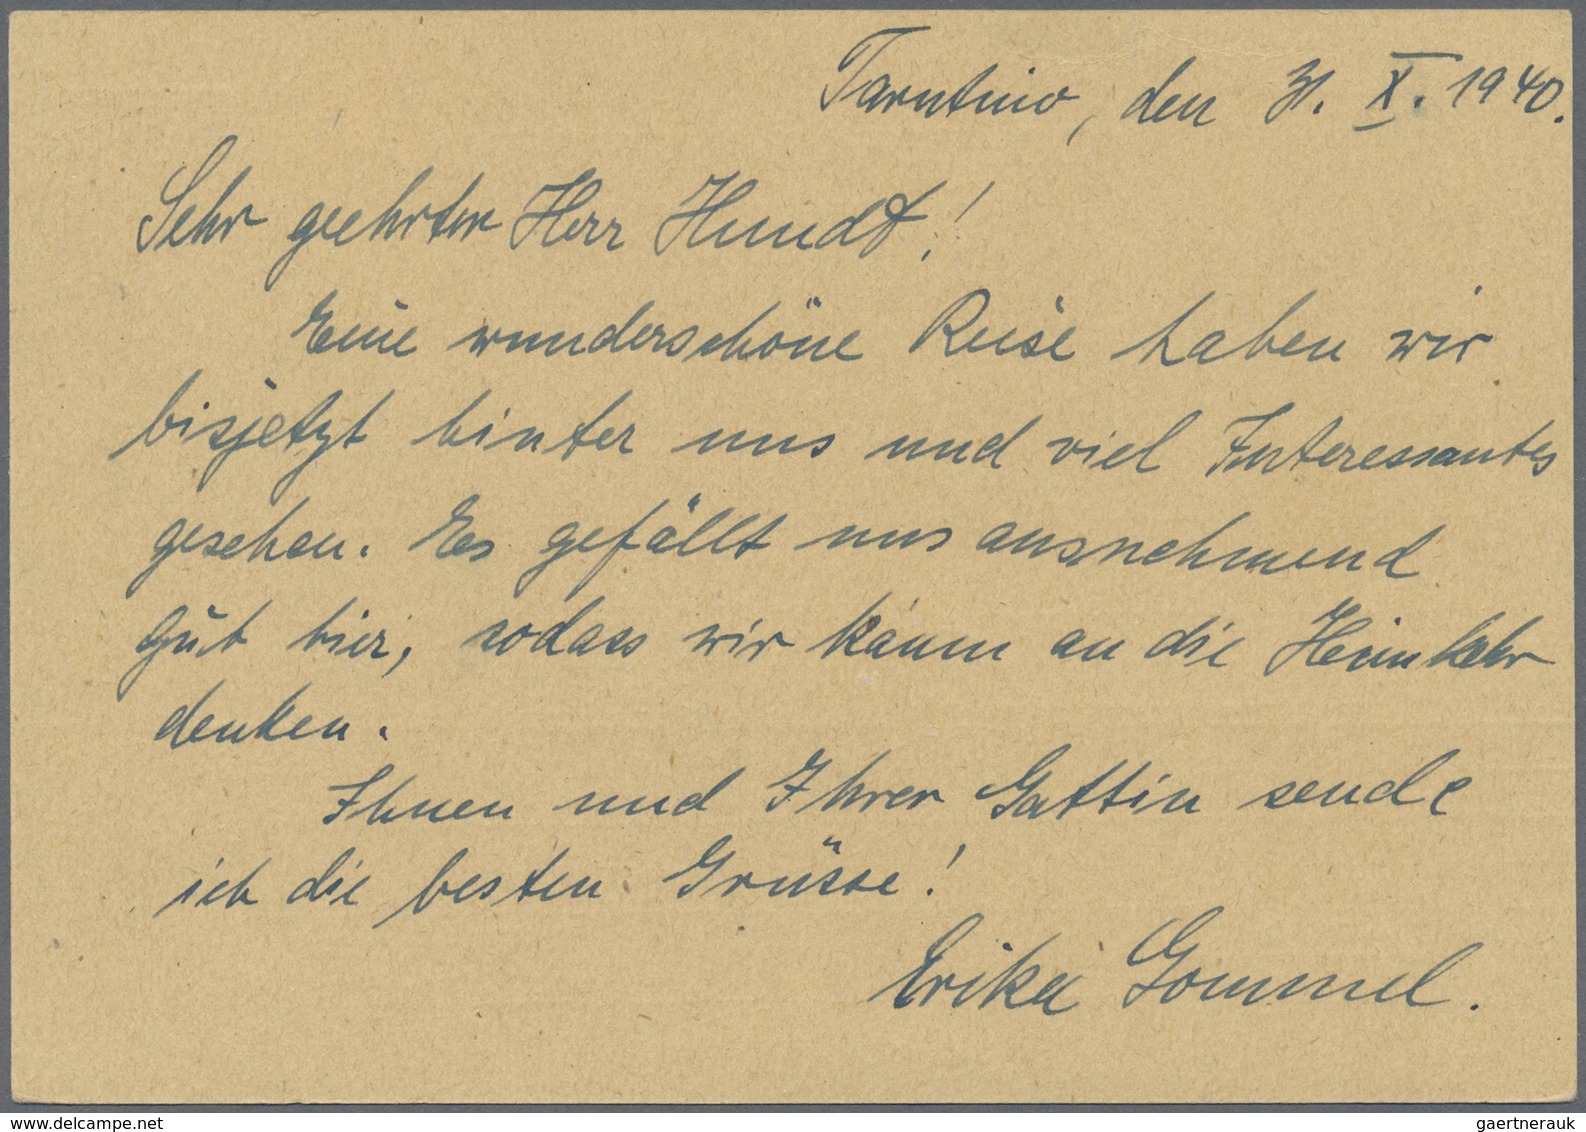 Tarutino, den 31. X. 1940.
Sehr geehrter Herr Hundt!
Eine wunderschöne Reise haben wir
bisjetzt hinter uns und viel Interessantes
gesehen. Es gefällt uns ausnehmend
gut hier, sodass wir kaum an die Heimkehr
denken.
Ihnen und Ihrer Gattin sende
ich die besten Grüsse!
Erika Gommel.
www.delcampe.net
gaertnerauk